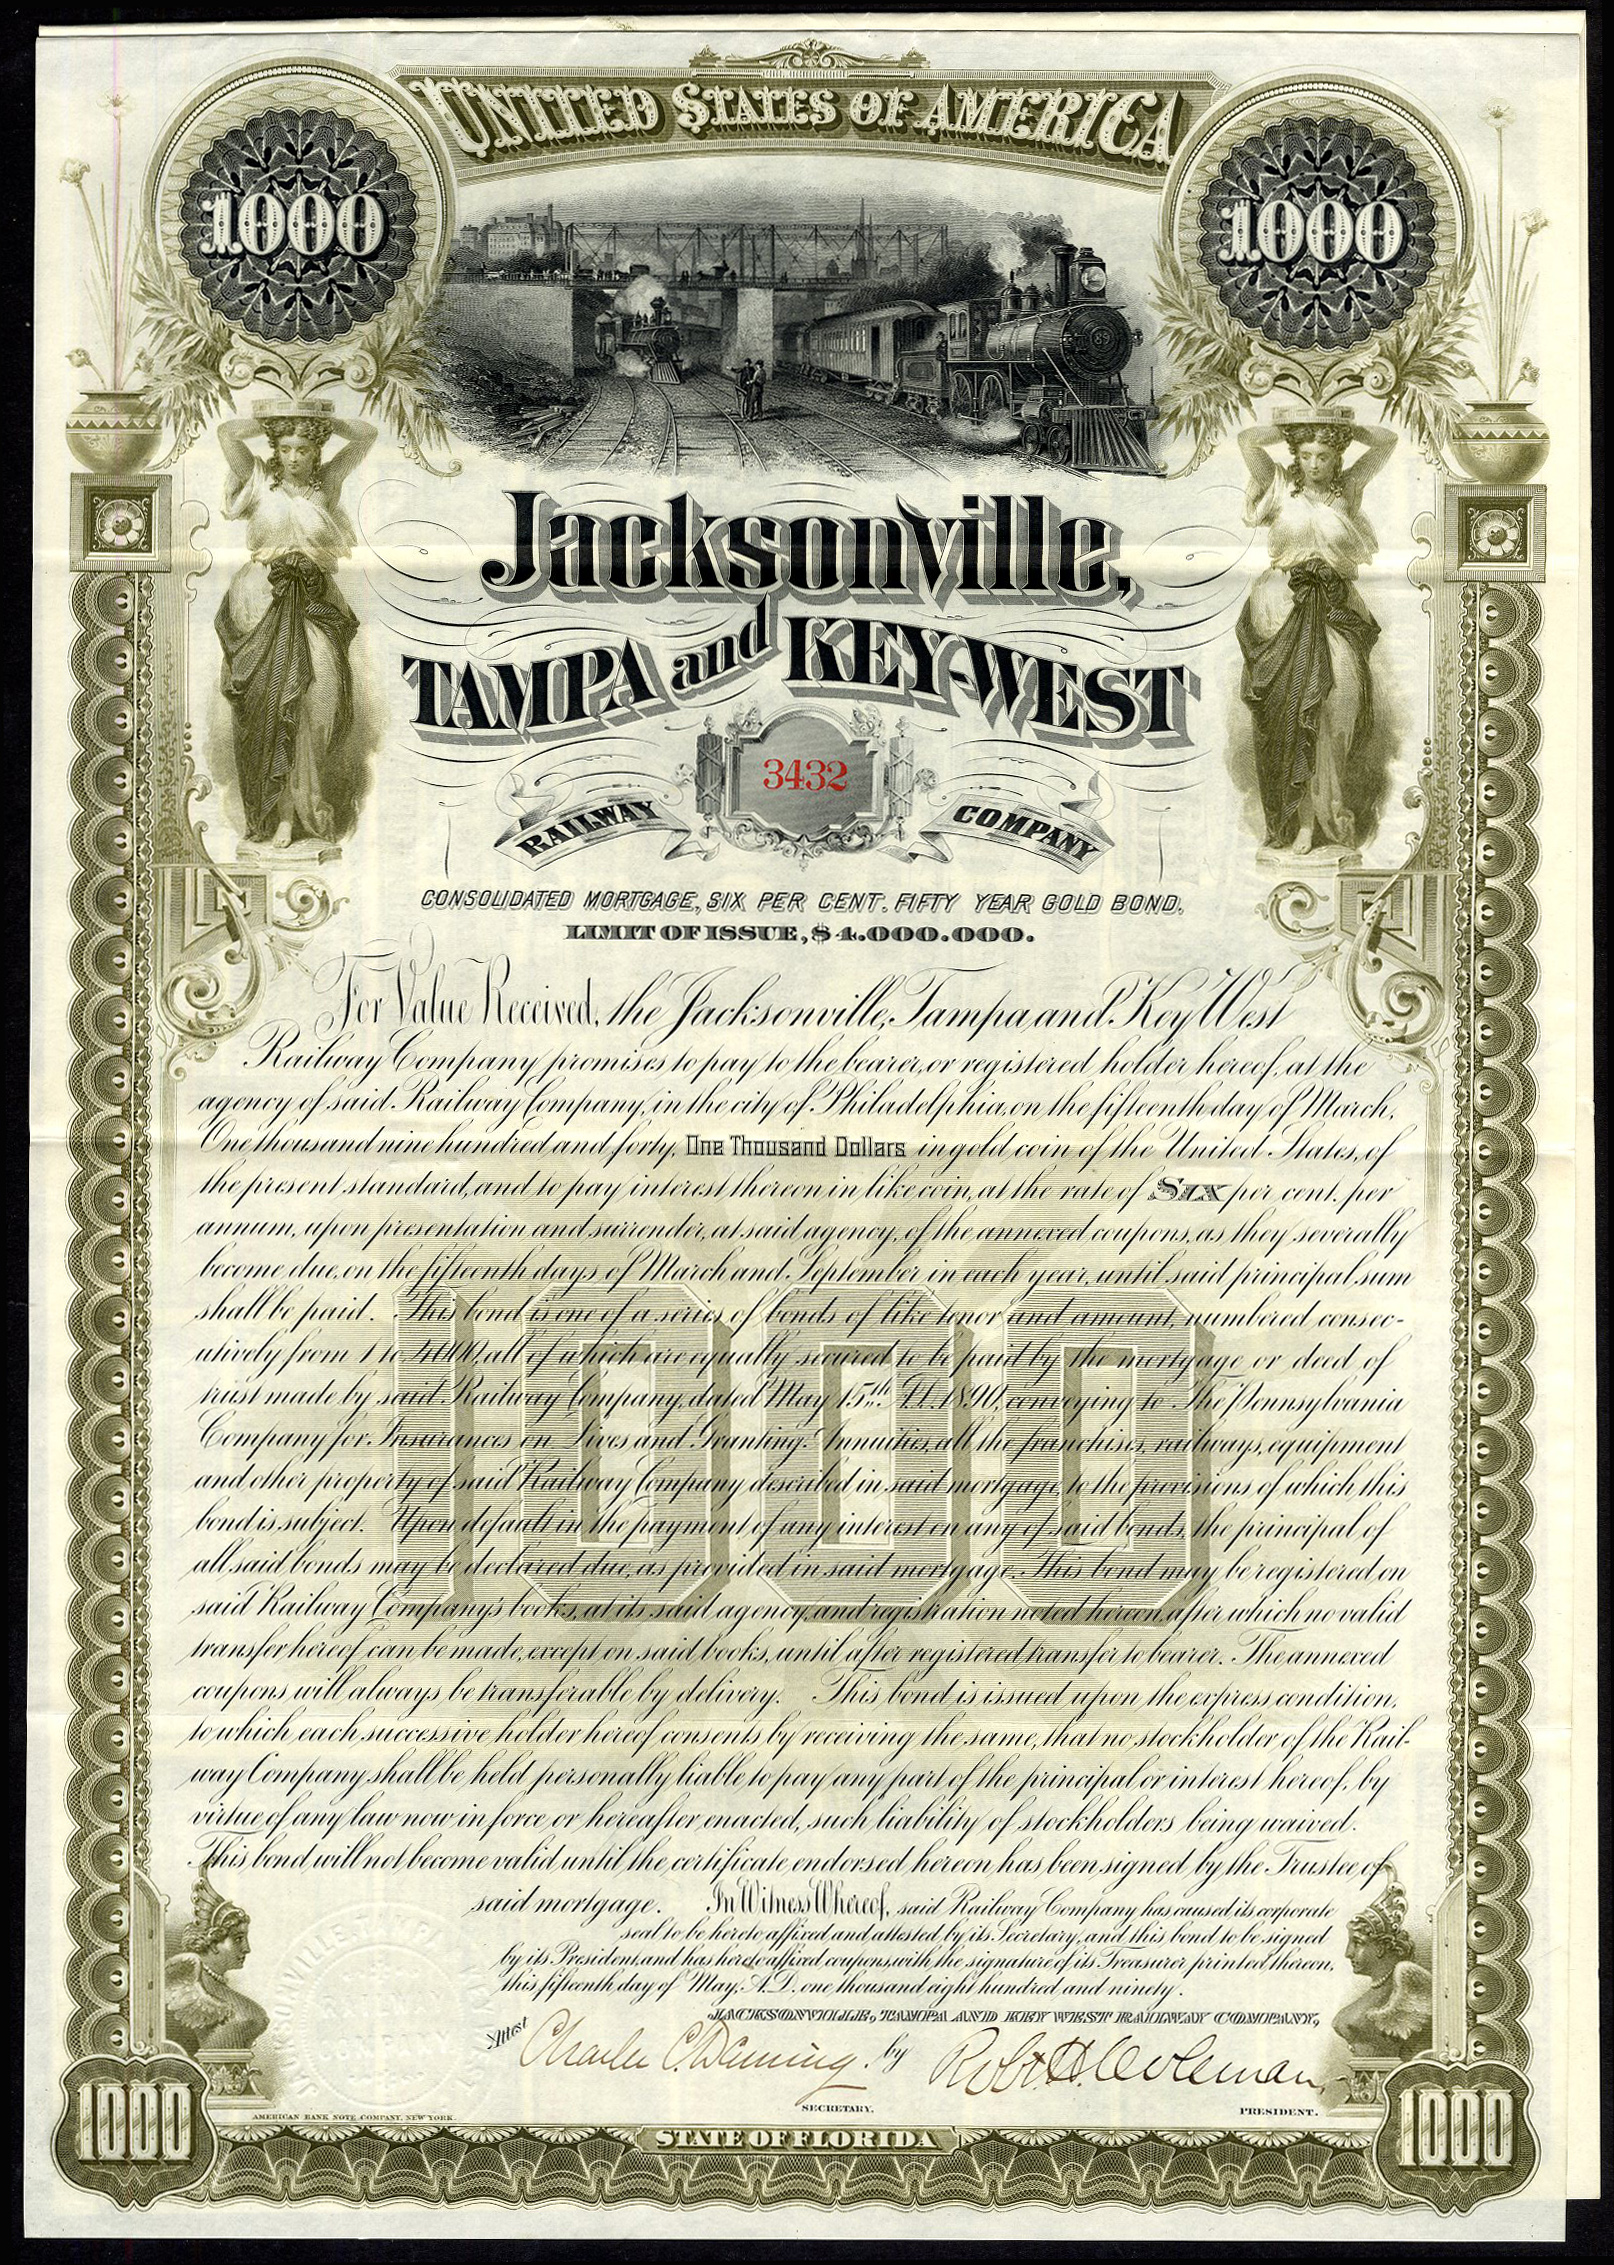 UNITED STATES OF AMERICA
1000
1000
89
Jacksonville,
TAMPA and KEY-WEST
3432
RAILWAY COMPANY
CONSOLIDATED MORTGAGE, SIX PER CENT. FIFTY YEAR GOLD BOND.
LIMIT OF ISSUE, $4.000.000.
For Value Received, the Jacksonville, Tampa and Key West
Railway Company promises to pay to the bearer, or registered holder hereof, at the
agency of said Railway Company, in the city of Philadelphia, on the fifteenth day of March,
One thousand nine hundred and forty, One Thousand Dollars in gold coin of the United States, of
the present standard, and to pay interest thereon in like coin, at the rate of SIX per cent. per
annum, upon presentation and surrender, at said agency, of the annexed coupons, as they severally
become due, on the fifteenth days of March and September in each year, until said principal sum
shall be paid. This bond is one of a series of bonds of like tenor and amount, numbered consec-
utively from 1 to 4000, all of which are equally secured to be paid by the mortgage or deed of
trust made by said Railway Company, dated May 15th A.D. 1890, conveying to The Pennsylvania
Company for Insurances on Lives and Granting Annuities, all the franchises, railways, equipment
and other property of said Railway Company described in said mortgage, to the provisions of which this
bond is subject. Upon default in the payment of any interest on any of said bonds, the principal of
all said bonds may be declared due, as provided in said mortgage. This bond may be registered on
said Railway Company's books, at its said agency, and registration noted hereon, after which no valid
transfer hereof can be made, except on said books, until after registered transfer to bearer. The annexed
coupons will always be transferable by delivery. This bond is issued upon the express condition,
to which each successive holder hereof consents by receiving the same, that no stockholder of the Rail-
way Company shall be held personally liable to pay any part of the principal or interest hereof, by
virtue of any law now in force or hereafter enacted, such liability of stockholders being waived.
This bond will not become valid until the certificate endorsed hereon has been signed by the Trustee of
said mortgage. In Witness Whereof, said Railway Company has caused its corporate
seal to be hereto affixed and attested by its Secretary, and this bond to be signed
by its President, and has hereto affixed coupons, with the signature of its Treasurer printed thereon,
this fifteenth day of May, A.D. one thousand eight hundred and ninety.
JACKSONVILLE, TAMPA AND KEY WEST RAILWAY COMPANY,
Attest Charles C. Deming by Robt. H. Coleman
SECRETARY.
PRESIDENT.
AMERICAN BANK NOTE COMPANY, NEW YORK.
1000
STATE OF FLORIDA
1000
1000